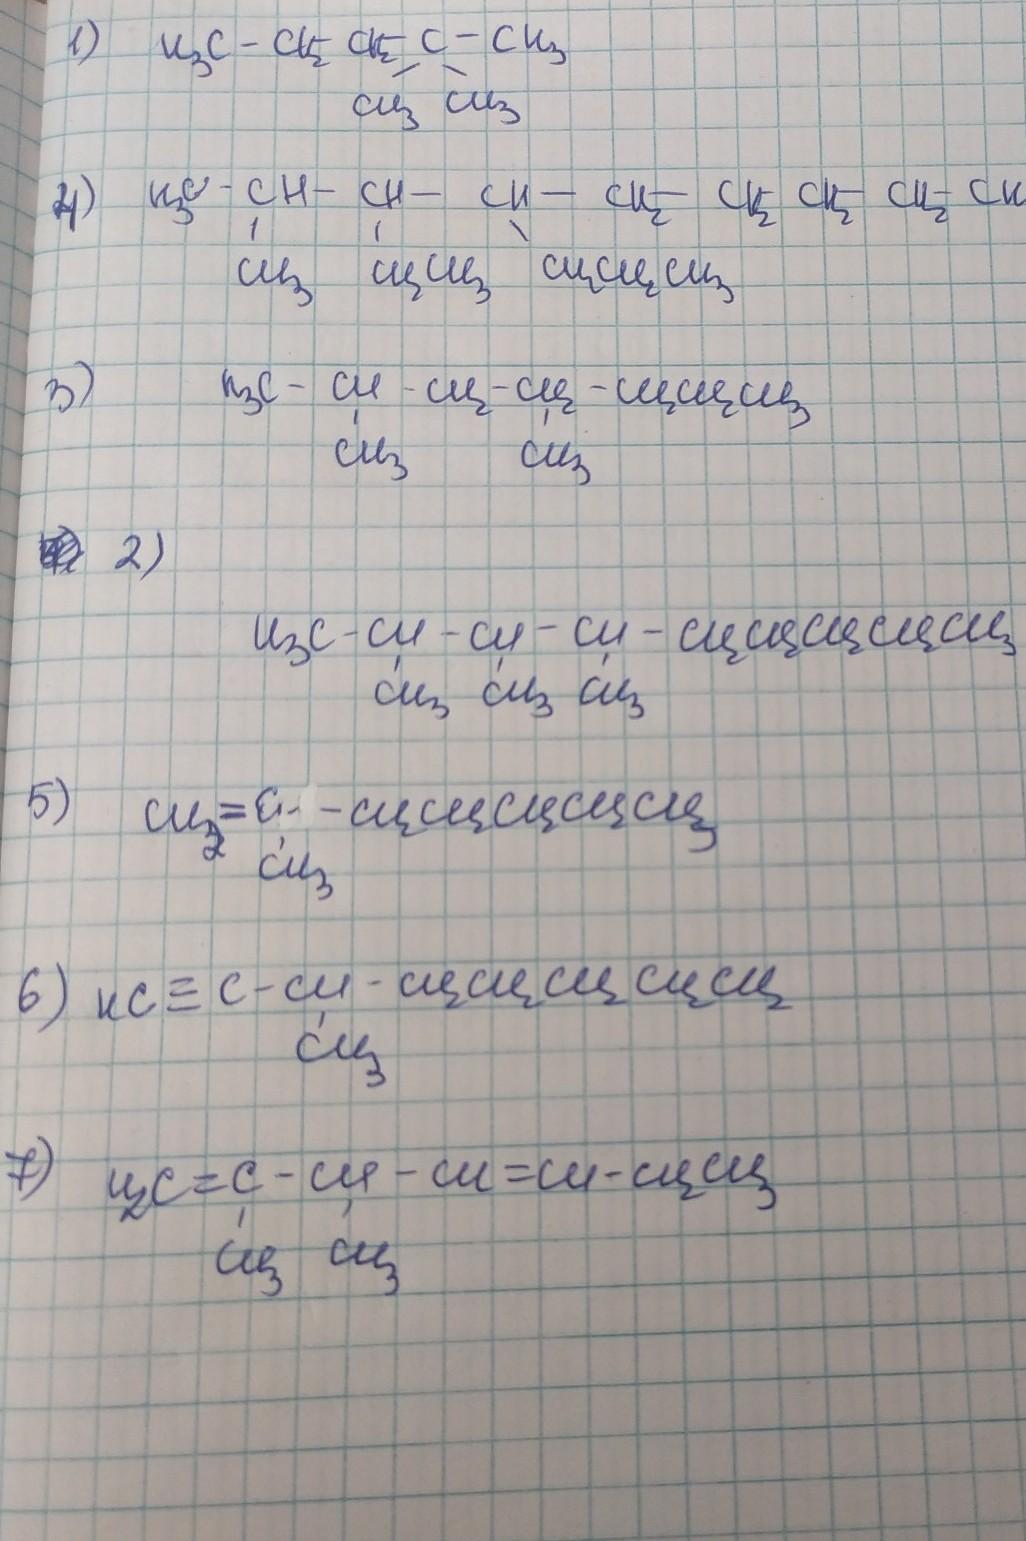 1) H₃C - CH₂ CH₂ C - CH₃
CH₃ CH₃
4) H₃C - CH - CH - CH - CH₂ - CH₂ CH₂ - CH₂ - CH
CH₃ CH₂CH₃ CH₂CH₂CH₃
3) H₃C - CH - CH₂ - CH₂ - CH₂CH₂CH₃
CH₃ CH₃
2)
H₃C - CH - CH - CH - CH₂CH₂CH₂CH₂CH₃
CH₃ CH₃ CH₃
5) CH₂ = C - CH₂CH₂CH₂CH₂CH₃
CH₃
6) HC ≡ C - CH - CH₂CH₂CH₂CH₂CH₂
CH₃
7) H₂C = C - CH - CH = CH - CH₂CH₃
CH₃ CH₃